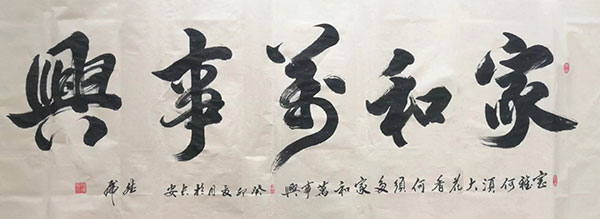 家和萬事興
室雅何須大花香何須多家和萬事興癸卯夏月於长安